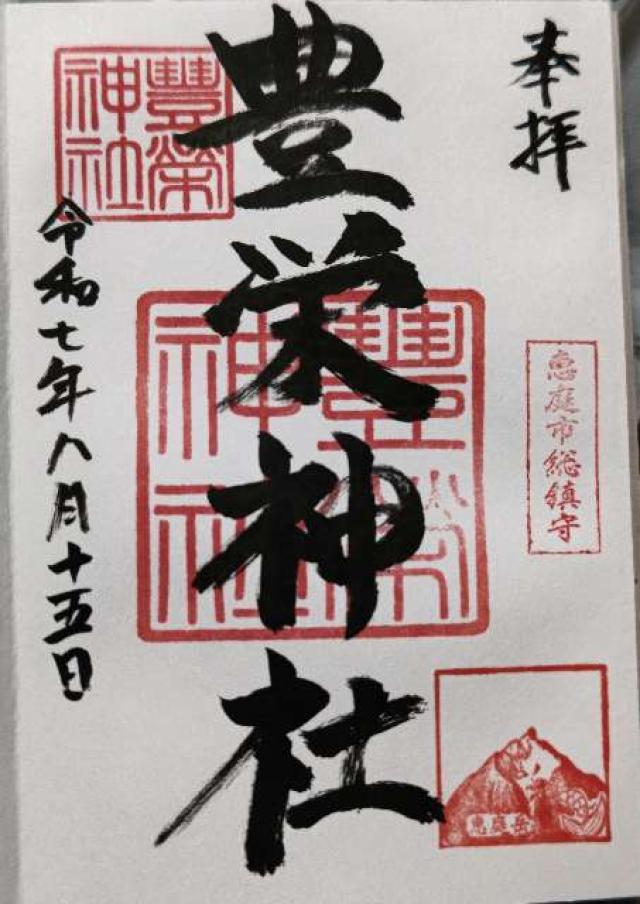 奉拝
恵庭市総鎮守
恵庭岳
豊栄神社
豐榮神社
豐榮神社
令和七年八月十五日